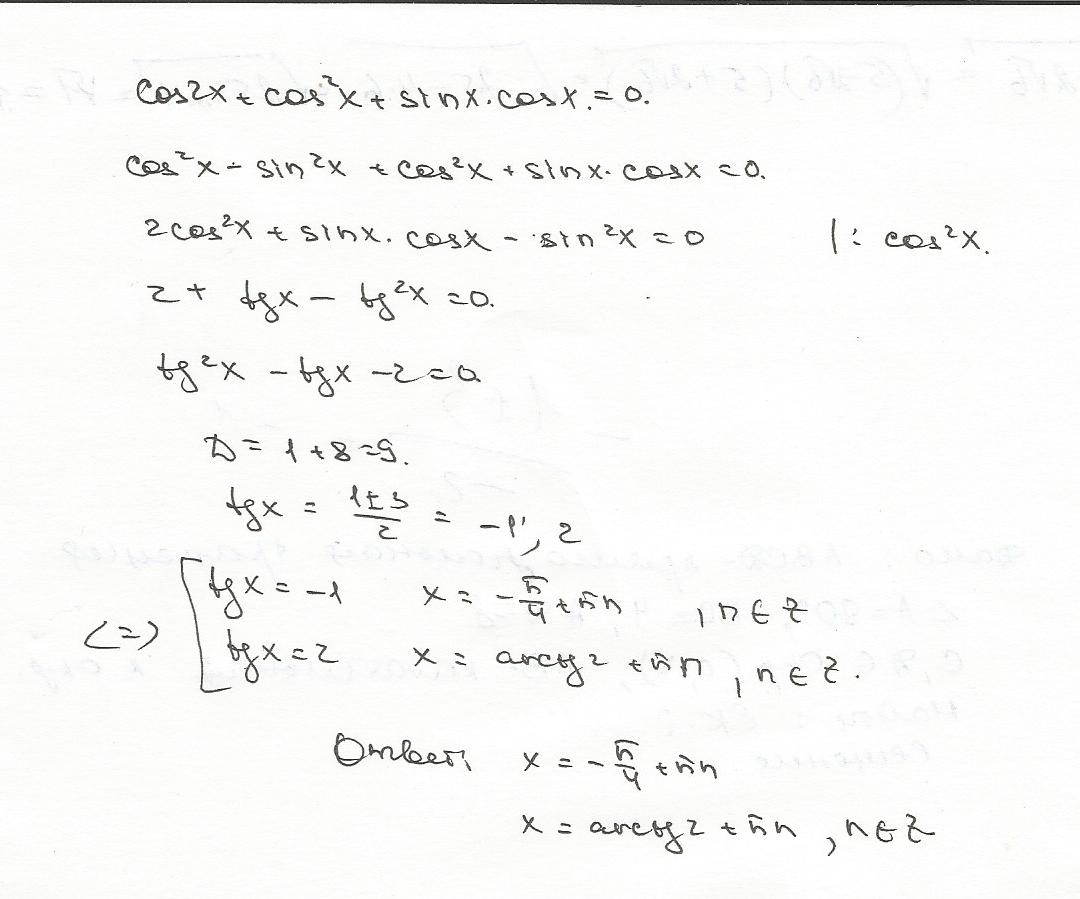 cos2x + cos²x + sinx · cosx = 0.
cos²x - sin²x + cos²x + sinx · cosx = 0.
2cos²x + sinx · cosx - sin²x = 0 |: cos²x.
2 + tgx - tg²x = 0.
tg²x - tgx - 2 = 0
D = 1 + 8 = 9.
tgx = (1±3)/2 = -1; 2
<=> [ tgx = -1 x = -π/4 + πn, n ∈ Z
tgx = 2 x = arctg2 + πn, n ∈ Z.
Ответ: x = -π/4 + πn
x = arctg2 + πn, n ∈ Z